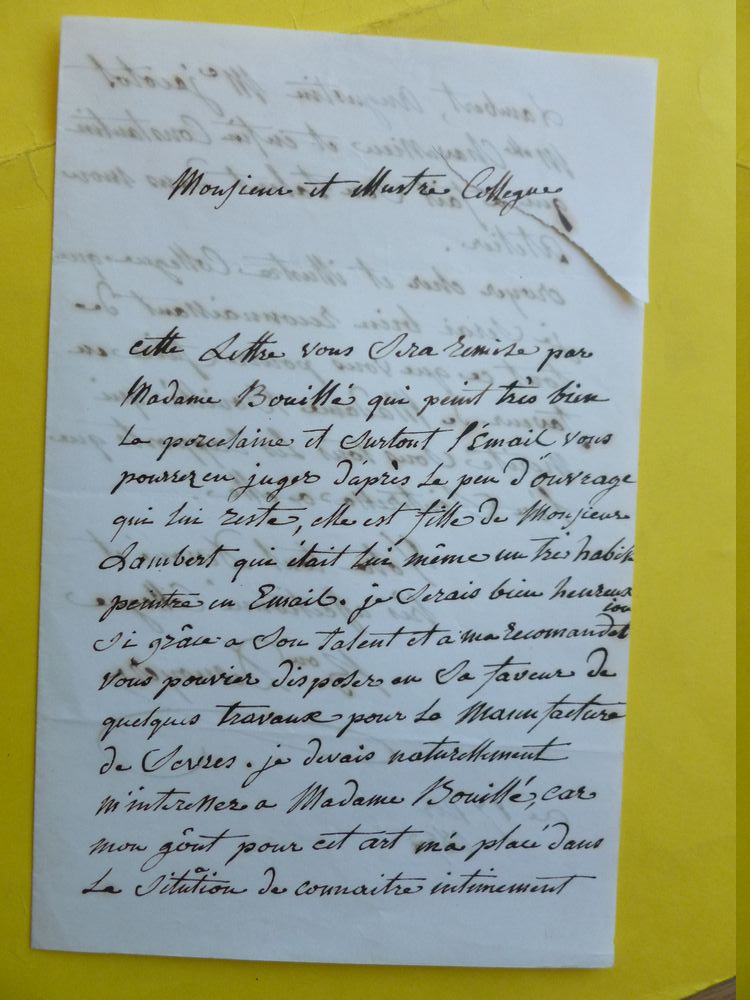 Monsieur et illustre Collegue
cette Lettre vous Sera remise par
Madame Bouillé qui peint très bien
la porcelaine et Surtout l'émail vous
pourrez en juger d'après le peu d'ouvrage
qui lui reste, elle est fille de Monsieur
Lambert qui était lui même un très habile
peintre en Email. je Serais bien heureux
Si grâce a Son talent et a ma recomandation
vous pouvier disposer en Sa faveur de
quelques travaux pour La Manufacture
de Sevres. je devais naturellement
m'interesser a Madame Bouillé, car
mon goût pour cet art m'a placé dans
La Sitûation de connaitre intimement